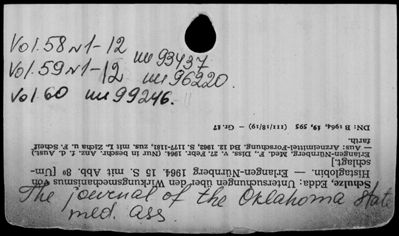 Vol. 58 N 1-12 ин 93437
Vol. 59 N 1-12 ин 96220.
Vol 60 ин 99246.
Schulze, Edda: Untersuchungen über den Wirkungsmechanismus von
Histaglobin. — Erlangen-Nürnberg 1964. 15 S. mit Abb. 8° [Um-
schlagt.]
Erlangen-Nürnberg, Med. F., Diss. v. 27. Febr. 1964. (Nur in beschr. Anz. f. d. Aust.)
— Aus: Arzneimittel-Forschung. Bd 12. 1962, S. 1177-1181, zus. mit L. Zicha u. F. Scheif-
farth.
DNi: B 1964, 19, 595 (111/18/19) — Gr. 17
The journal of the Oklahoma State
med. ass.